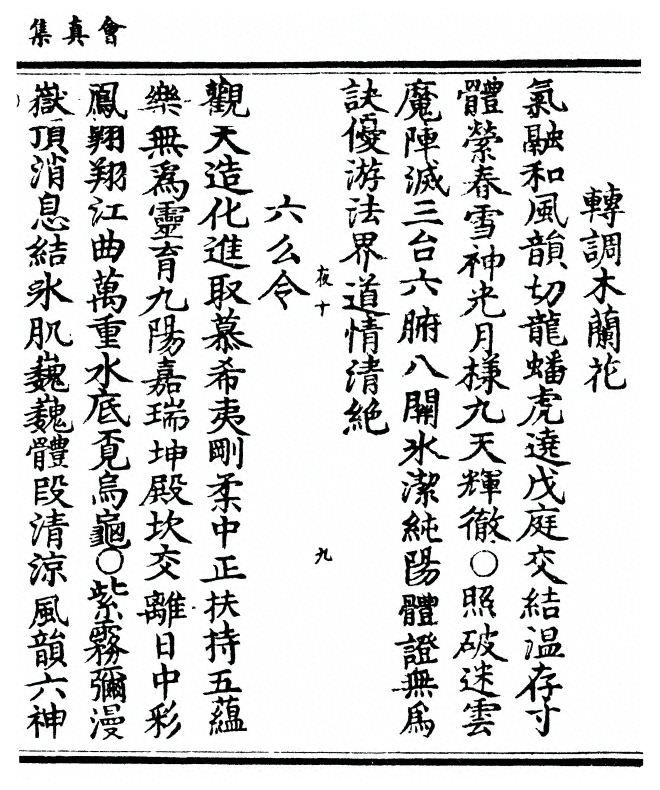 會真集
轉調木蘭花
氣融和風韻切龍蟠虎遶戊庭交結溫存寸
體瑩春雪神光月樣九天輝徹○照破迷雲
魔陣滅三台六腑八關氷潔純陽體證無爲
訣優游法界道情清絶
夜十
九
六么令
觀天造化進取慕希夷剛柔中正扶持五蘊
樂無爲靈育九陽嘉瑞坤殿坎交離日中彩
鳳翔翔江曲萬重水底覓烏龜○紫霧彌漫
嶽頂消息結氷肌巍巍體段清涼風韻六神